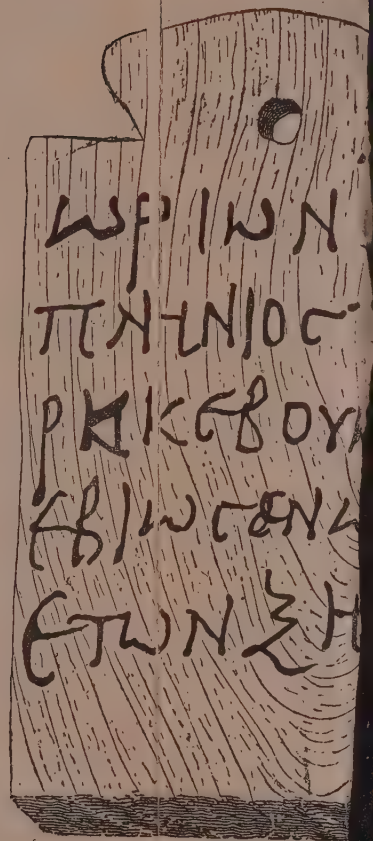 ωριων
πνηνιος
ρκκεβου
εβιωσεν
ετων ξη